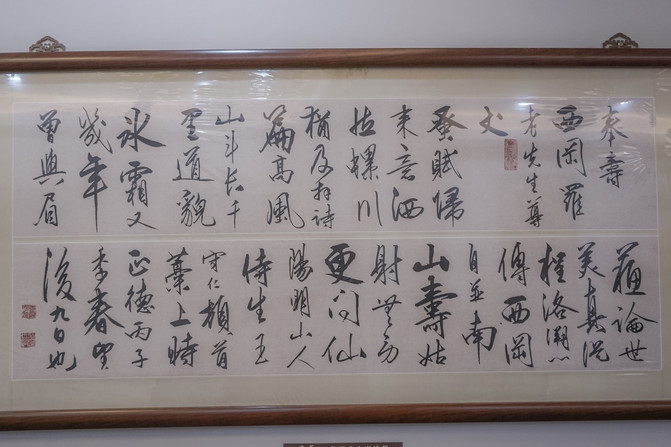 奉壽
西岡羅
老先生尊
丈
蚤賦歸
來意洒
然螺川
猶及拜詩
篇高風
山斗長千
里道貌
冰霜又
幾年
曾與眉
蘇論世
美真從
程洛溯心
傳西岡
自並南
山壽姑
射無勞
更問仙
陽明山人
侍生王
守仁頓首
藁上時
正德丙子
季春望
後九日也